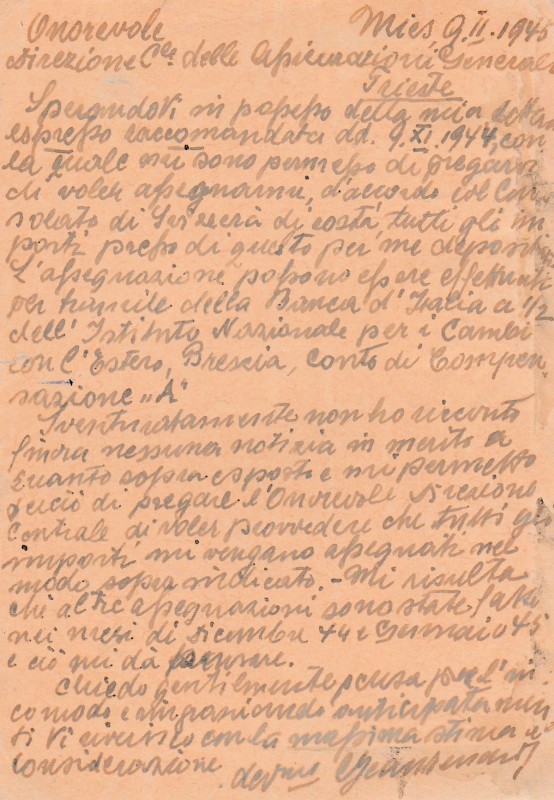 Onorevole Mies 9.II.1945
Direzione C.le delle Assicurazioni Generali
Trieste
Sperandovi in possesso della mia
espresso raccomandata dd. 9.XI.1944, con
la quale mi sono permesso di pregarvi
di voler assegnarmi, d'accordo col Con
solato di Svizzera di costà, tutti gli im
porti presso di questo per me
L'assegnazione possono essere effettuati
per tramite della Banca d'Italia a 1/2
dell'Istituto Nazionale per i Cambi
con l'Estero, Brescia, Conto di Compen
sazione "A"
Sventuratamente non ho ricevuto
finora nessuna notizia in merito a
quanto sopra esposto e mi permetto
perciò di pregare l'Onorevole Direzione
Centrale di voler provvedere che tutti gli
importi mi vengano assegnati nel
modo sopra indicato. - Mi risulta
che altre assegnazioni sono state fatte
nei mesi di Dicembre 44 e Gennaio 45
e ciò mi dà
Chiedo gentilmente scusa per l'in
comodo e ringraziando anticipatamen
te Vi riverisco con la massima stima e
considerazione.